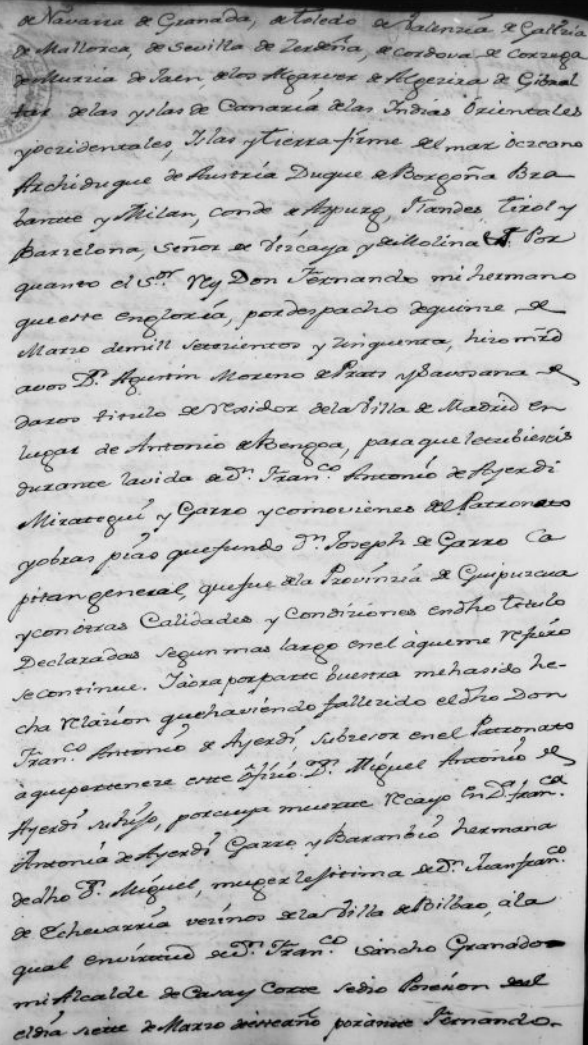 de Navarra de Granada, de Toledo de Valenzia de Galizia
de Mallorca, de Sevilla de Zerdeña, de cordova de Corzega
de Murzia de Jaen, de los Algarves de Algezira de Gibral
tar de las yslas de Canaria de las Indias Orientales
y oczidentales, Islas y tierra firme del mar Oczeano
Archiduque de Austria Duque de Borgoña Bra
bante y Milan, conde de Aspurg, Flandes, Tirol y
Barzelona, Señor de Vizcaya y de Molina &ª. Por
quanto el S.or Rey Don Fernando mi hermano
que este en gloria, por despacho de quinze de
Marzo de mill setezientos y zinquenta, hizo mrd
a vos D.n Agustin Moreno de Prats y de
daros titulo de rexidor de la Villa de Madrid en
lugar de Antonio de Bengoa, para que le tubieseis
durante la vida de D.n Fran.co Antonio de Ayerdi
Mirategui y Garro y como vienes del Patronato
y obras pias que fundo D.n Joseph de Garro Ca
pitan general, que fue de la Provinzia de Guipuzcua
y con otras Calidades y Condiziones en dho titulo
Declaradas segun mas largo en el a que me refiero
se contiene. Y aora por parte buestra me ha sido he-
cha relazion que haviendo fallezido el dho Don
Fran.co Antonio de Ayerdi, subzesor en el Patronato
à que perteneze este ofizio D.n Miguel Antonio de
Ayerdi su hijo, por cuya muerte recayo en D.ª Fran.ca
Antonia de Ayerdi Garro y Baranbio hermana
de dho D.n Miguel, muger lexitima de D.n Juan fran.co
de Echevarria vezinos de la Villa de Bilbao, à la
qual en virtud de D.n Fran.co Sancho Granado
mi Alcalde de Casa y Corte se dio Posesion
el dia siete de Marzo de este año por ante Fernando